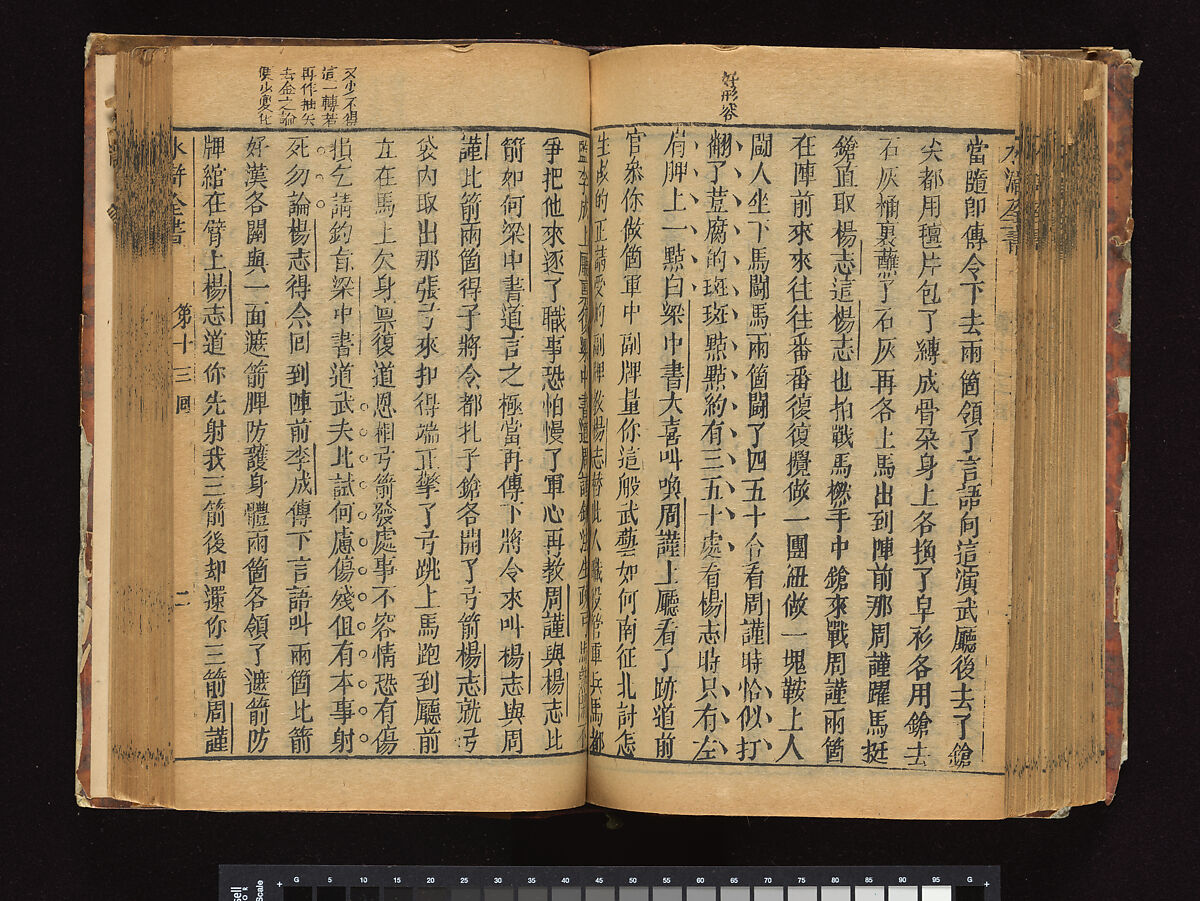 好形容
當隨即傳令下去兩箇領了言語向這演武廳後去了鎗
尖都用氊片包了縛成骨朶身上各換了皂衫各用鎗去
石灰桶裏蘸了石灰再各上馬出到陣前那周謹躍馬挺
鎗直取楊志這楊志也拍戰馬撚手中鎗來戰周謹兩箇
在陣前來來往往番番復復攪做一團紐做一塊鞍上人
鬬人坐下馬鬬馬兩箇鬬了四五十合看周謹時恰似打
翻了荳腐的斑斑點點約有三五十處看楊志時只有左
肩胛上一點白梁中書大喜叫喚周謹上廳看了跡道前
官參你做箇軍中副牌量你這般武藝如何南征北討怎
生做的正請受的副牌教楊志替此人職役管軍兵馬都
又少不得
這一轉若
再作抽矢
去金之論
便少變化
監李成上廳稟復梁中書道周謹鎗法生疎弓馬熟嫻不
爭把他來逐了職事恐怕慢了軍心再教周謹與楊志比
箭如何梁中書道言之極當再傳下將令來叫楊志與周
謹比箭兩箇得了將令都扎了鎗各開了弓箭楊志就弓
袋內取出那張弓來扣得端正擎了弓跳上馬跑到廳前
立在馬上欠身稟復道恩相弓箭發處事不容情恐有傷
損乞請鈞旨梁中書道武夫比試何慮傷殘但有本事射
死勿論楊志得令回到陣前李成傳下言語叫兩箇比箭
好漢各關與一面遮箭牌防護身體兩箇各領了遮箭防
牌綰在臂上楊志道你先射我三箭後却還你三箭周謹
水滸全書
第十三回
二